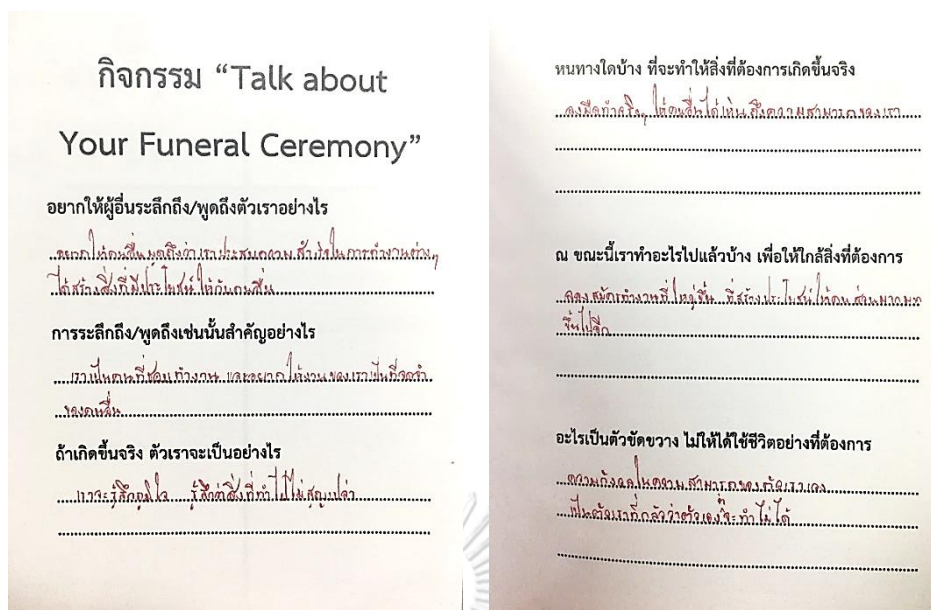 กิจกรรม “Talk about
Your Funeral Ceremony”
อยากให้ผู้อื่นระลึกถึง/พูดถึงตัวเราอย่างไร
อยากให้คนอื่นพูดถึงว่าเราประสบความสำเร็จในการทำงานต่างๆ
ได้สร้างสิ่งที่มีประโยชน์ให้กับคนอื่น
การระลึกถึง/พูดถึงเช่นนั้นสำคัญอย่างไร
เราเป็นคนที่ชอบทำงาน และอยากให้งานของเราเป็นที่จดจำ
ของคนอื่น
ถ้าเกิดขึ้นจริง ตัวเราจะเป็นอย่างไร
เราจะรู้สึกภูมิใจ รู้สึกว่าสิ่งที่ทำไปไม่สูญเปล่า
หนทางใดบ้าง ที่จะทำให้สิ่งที่ต้องการเกิดขึ้นจริง
ลงมือทำจริงๆ ให้คนอื่นได้เห็นถึงความสามารถของเรา
ณ ขณะนี้เราทำอะไรไปแล้วบ้าง เพื่อให้ใกล้สิ่งที่ต้องการ
ลองสมัครทำงานที่ใหญ่ขึ้น ที่สร้างประโยชน์ให้คนส่วนมาก
ขึ้นไปอีก
อะไรเป็นตัวขัดขวาง ไม่ให้ได้ใช้ชีวิตอย่างที่ต้องการ
ความกังวลในความสามารถของตัวเราเอง
เป็นตัวเราที่กลัวว่าตัวเองจะทำไม่ได้